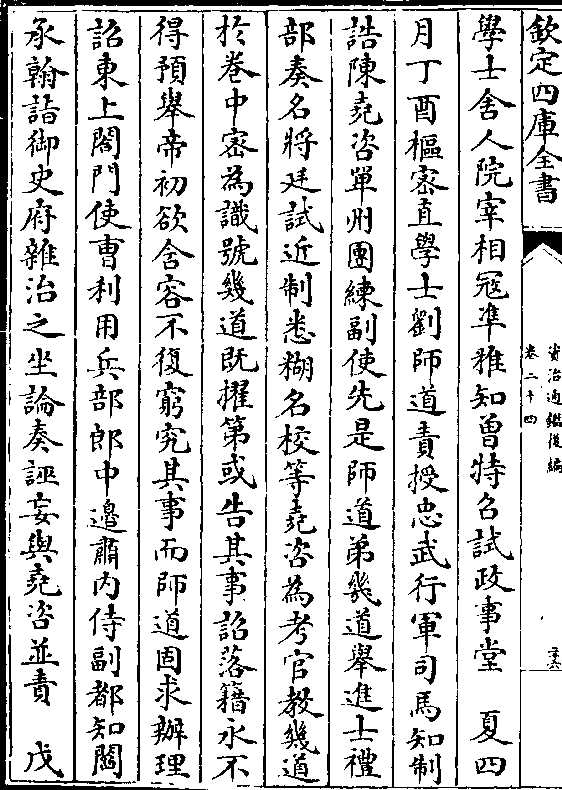 欽定四庫全書
資治通鑑後編
卷二十四
學士舍人院宰相冦凖雅知曾特召試政事堂　夏四
月丁酉樞密直學士劉師道責授忠武行軍司馬知制
誥陳堯咨單州團練副使先是師道弟幾道舉進士禮
部奏名將廷試近制悉糊名校等堯咨為考官教幾道
於卷中密為識號幾道既擢第或告其事詔落籍永不
得預舉帝初欲舍容不復窮究其事而師道固求辦理
詔東上閤門使曹利用兵部郎中邉肅内侍副都知閻
承翰詣御史府雜治之坐論奏誣妄與堯咨並責　戊